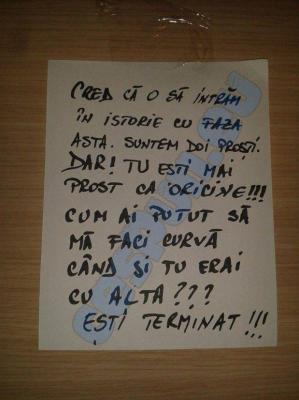 CRED CĂ O SĂ INTRĂM
ÎN ISTORIE CU FAZA
ASTA. SUNTEM DOI PROȘTI.
DAR! TU EȘTI MAI
PROST CA ORICINE!!!
CUM AI PUTUT SĂ
MĂ FACI CURVĂ
CÂND ȘI TU ERAI
CU ALTA???
EȘTI TERMINAT!!!